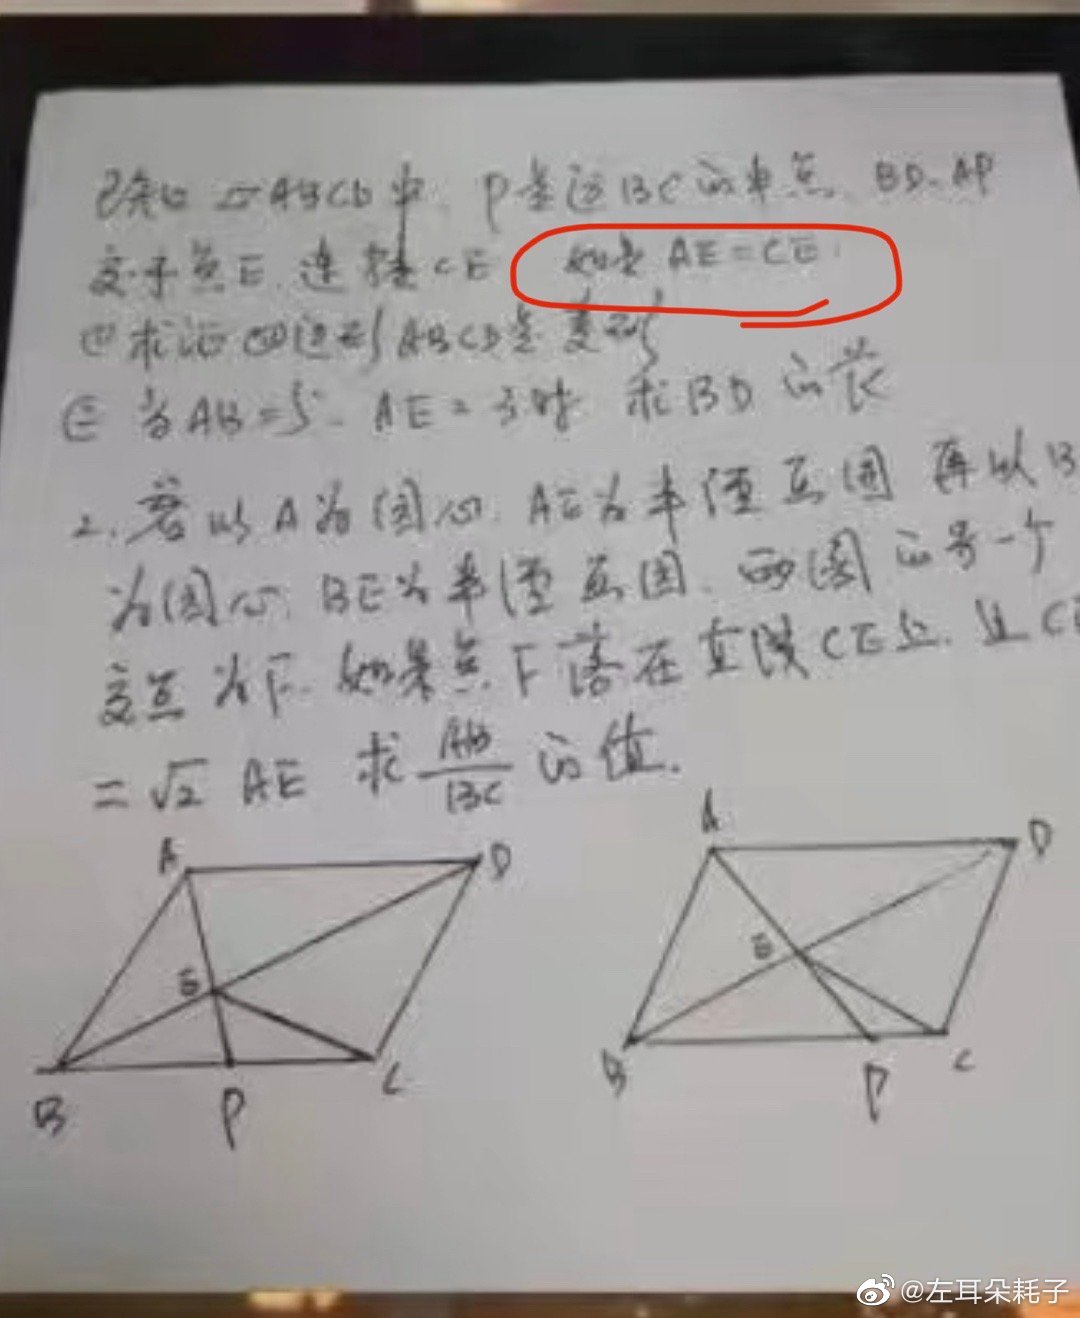 已知▱ABCD中,P是边BC的中点、BD、AP
交于点E,连接CE 如果AE=CE
① 求证四边形ABCD是菱形
② 当AB=5、AE=3时 求BD的长
2.若以A为圆心,AE为半径画圆 再以B
为圆心,BE为半径画圆、两圆的另一个
交点为F,如果点F落在直线CE上,且CE
=√2 AE 求 AB/BC 的值.
A D A D
E E
B P C B P C
@左耳朵耗子